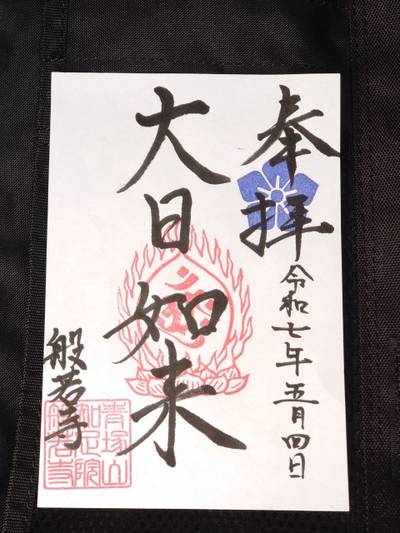 奉拝
令和七年五月四日
大日如来
般若寺
青塚山
般若寺